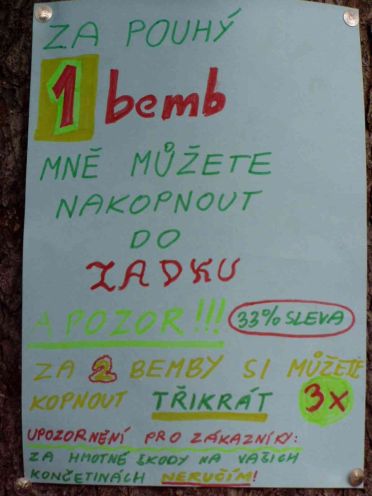 ZA POUHÝ
1 bemb
MNĚ MŮŽETE
NAKOPNOUT
DO
ZADKU
A POZOR!!! 33% SLEVA
ZA 2 BEMBY SI MŮŽETE
KOPNOUT TŘIKRÁT 3x
UPOZORNĚNÍ PRO ZÁKAZNÍKY:
ZA HMOTNÉ ŠKODY NA VAŠICH
KONČETINÁCH NERUČÍM!